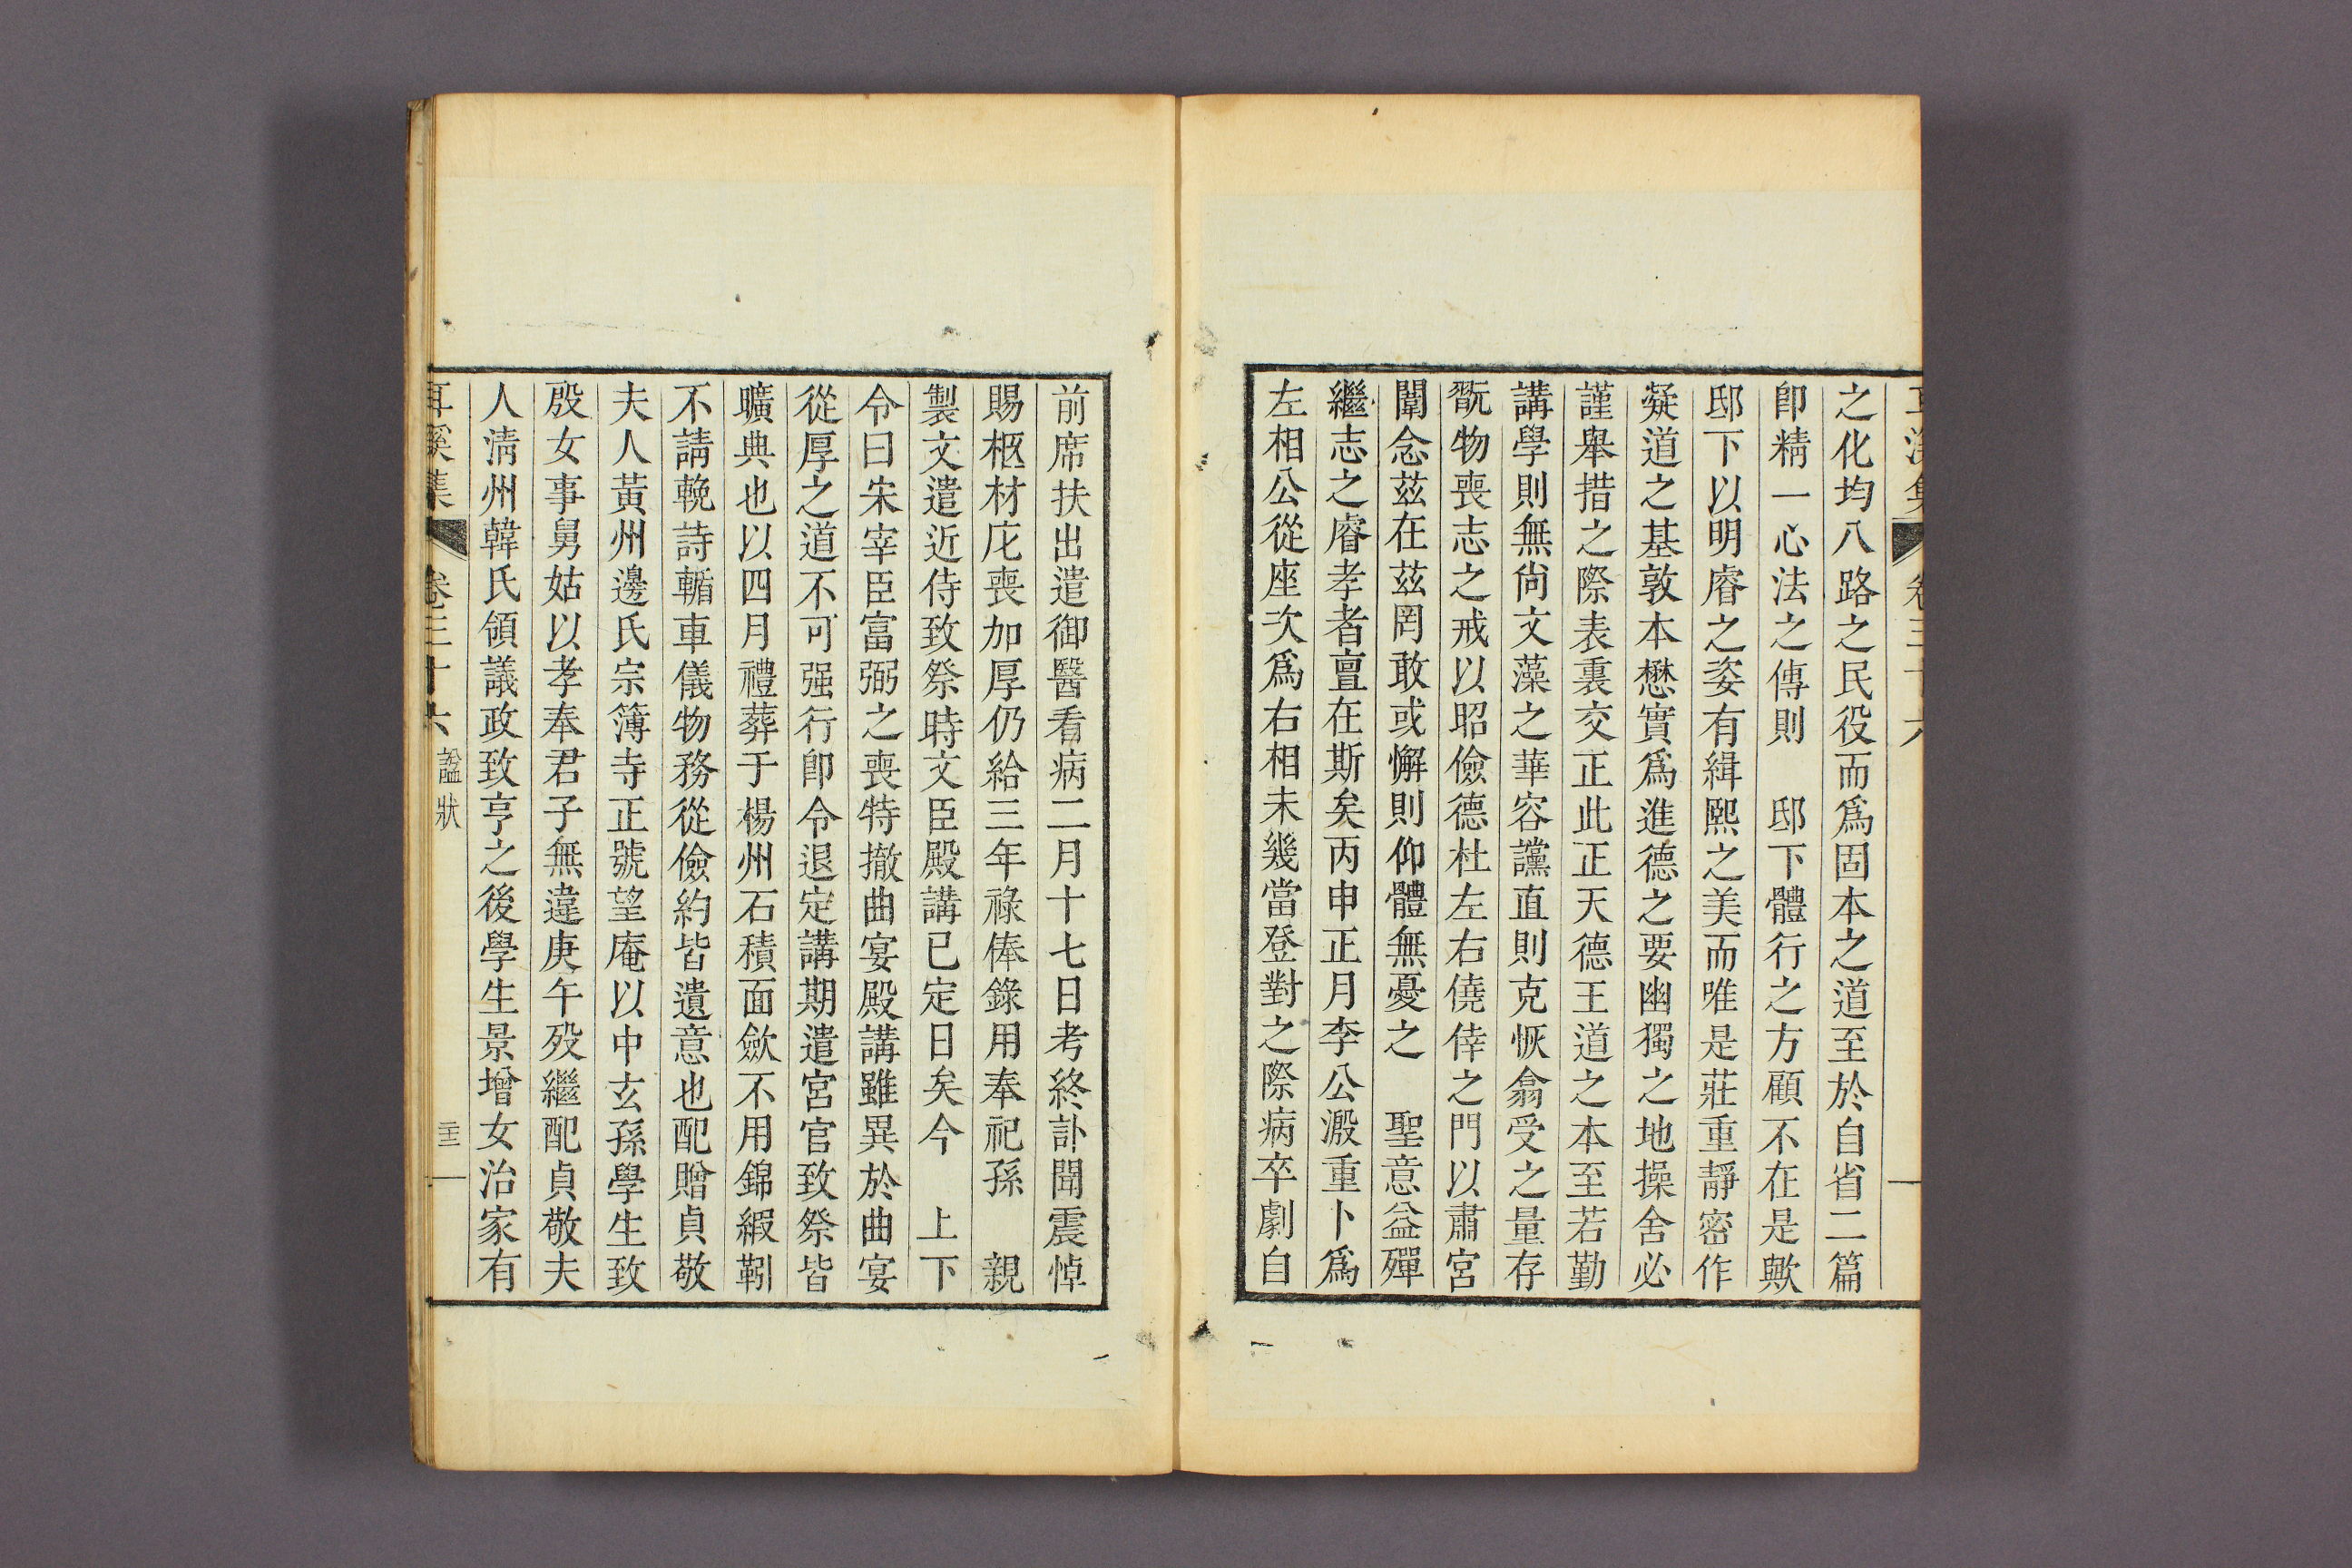 之化均八路之民役而爲固本之道至於自省二篇
卽精一心法之傳則　邸下體行之方顧不在是歟
邸下以明睿之姿有緝熙之美而唯是莊重靜密作
凝道之基敦本懋實爲進德之要幽獨之地操舍必
謹舉措之際表裏交正此正天德王道之本至若勤
講學則無尙文藻之華容讜直則克恢翕受之量存
翫物喪志之戒以昭儉德杜左右僥倖之門以肅宮
闈念茲在茲罔敢或懈則仰體無憂之　聖意益殫
繼志之睿孝者亶在斯矣丙申正月李公溵重卜爲
左相公從座次爲右相未幾當登對之際病卒劇自
前席扶出遣御醫看病二月十七日考終訃聞震悼
賜柩材庀喪加厚仍給三年祿俸錄用奉祀孫　親
製文遣近侍致祭時文臣殿講已定日矣今　上下
令曰宋宰臣富弼之喪特撤曲宴殿講雖異於曲宴
從厚之道不可强行卽令退定講期遣宮官致祭皆
曠典也以四月禮葬于楊州石積面歛不用錦緞靷
不請輓詩輴車儀物務從儉約皆遺意也配贈貞敬
夫人黃州邊氏宗簿寺正號望庵以中玄孫學生致
殷女事舅姑以孝奉君子無違庚午歿繼配貞敬夫
人淸州韓氏領議政致亨之後學生景增女治家有
耳溪集　卷三十六　諡狀